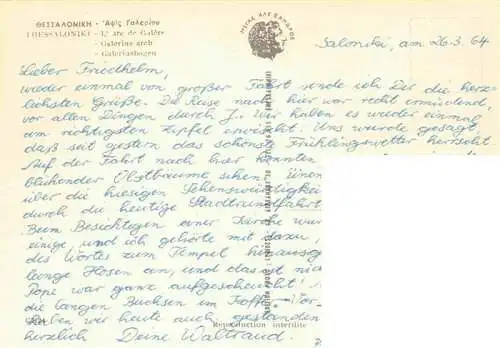 ΘΕΣΣΑΛΟΝΙΚΗ - Ἁψὶς Γαλερίου
THESSALONIKI - L' arc de Galère
- Galerius arch
- Galeriusbogen
ΜΕΓΑΣ ΑΛΕΞΑΝΔΡΟΣ
Saloniki, am 26.3.64
Lieber Friedhelm,
wieder einmal von großer Fahrt sende ich Dir die herz-
lichsten Grüße. Die Reise nach hier war recht ermüdend,
vor allen Dingen durch J. Wir haben es wieder einmal
am richtigsten Zipfel erwischt. Uns wurde gesagt,
daß seit gestern das schönste Frühlingswetter herrscht.
Auf der Fahrt nach hier konnten
blühender Obstbäume sehen. einen
über die hiesigen Sehenswürdigkeit
durch die heutige Stadtrundfahrt
Beim Besichtigen einer Kirche wur
einige, und ich gehörte mit dazu,
des Wortes zum Tempel hinausge
lange Hosen an, und das ist nic
Pope war ganz aufgescheucht!
die langen Buchsen im Koffe Vor
haben wir heute auch gestanden
herzlich Deine Waltraud.
Reproduction interdite